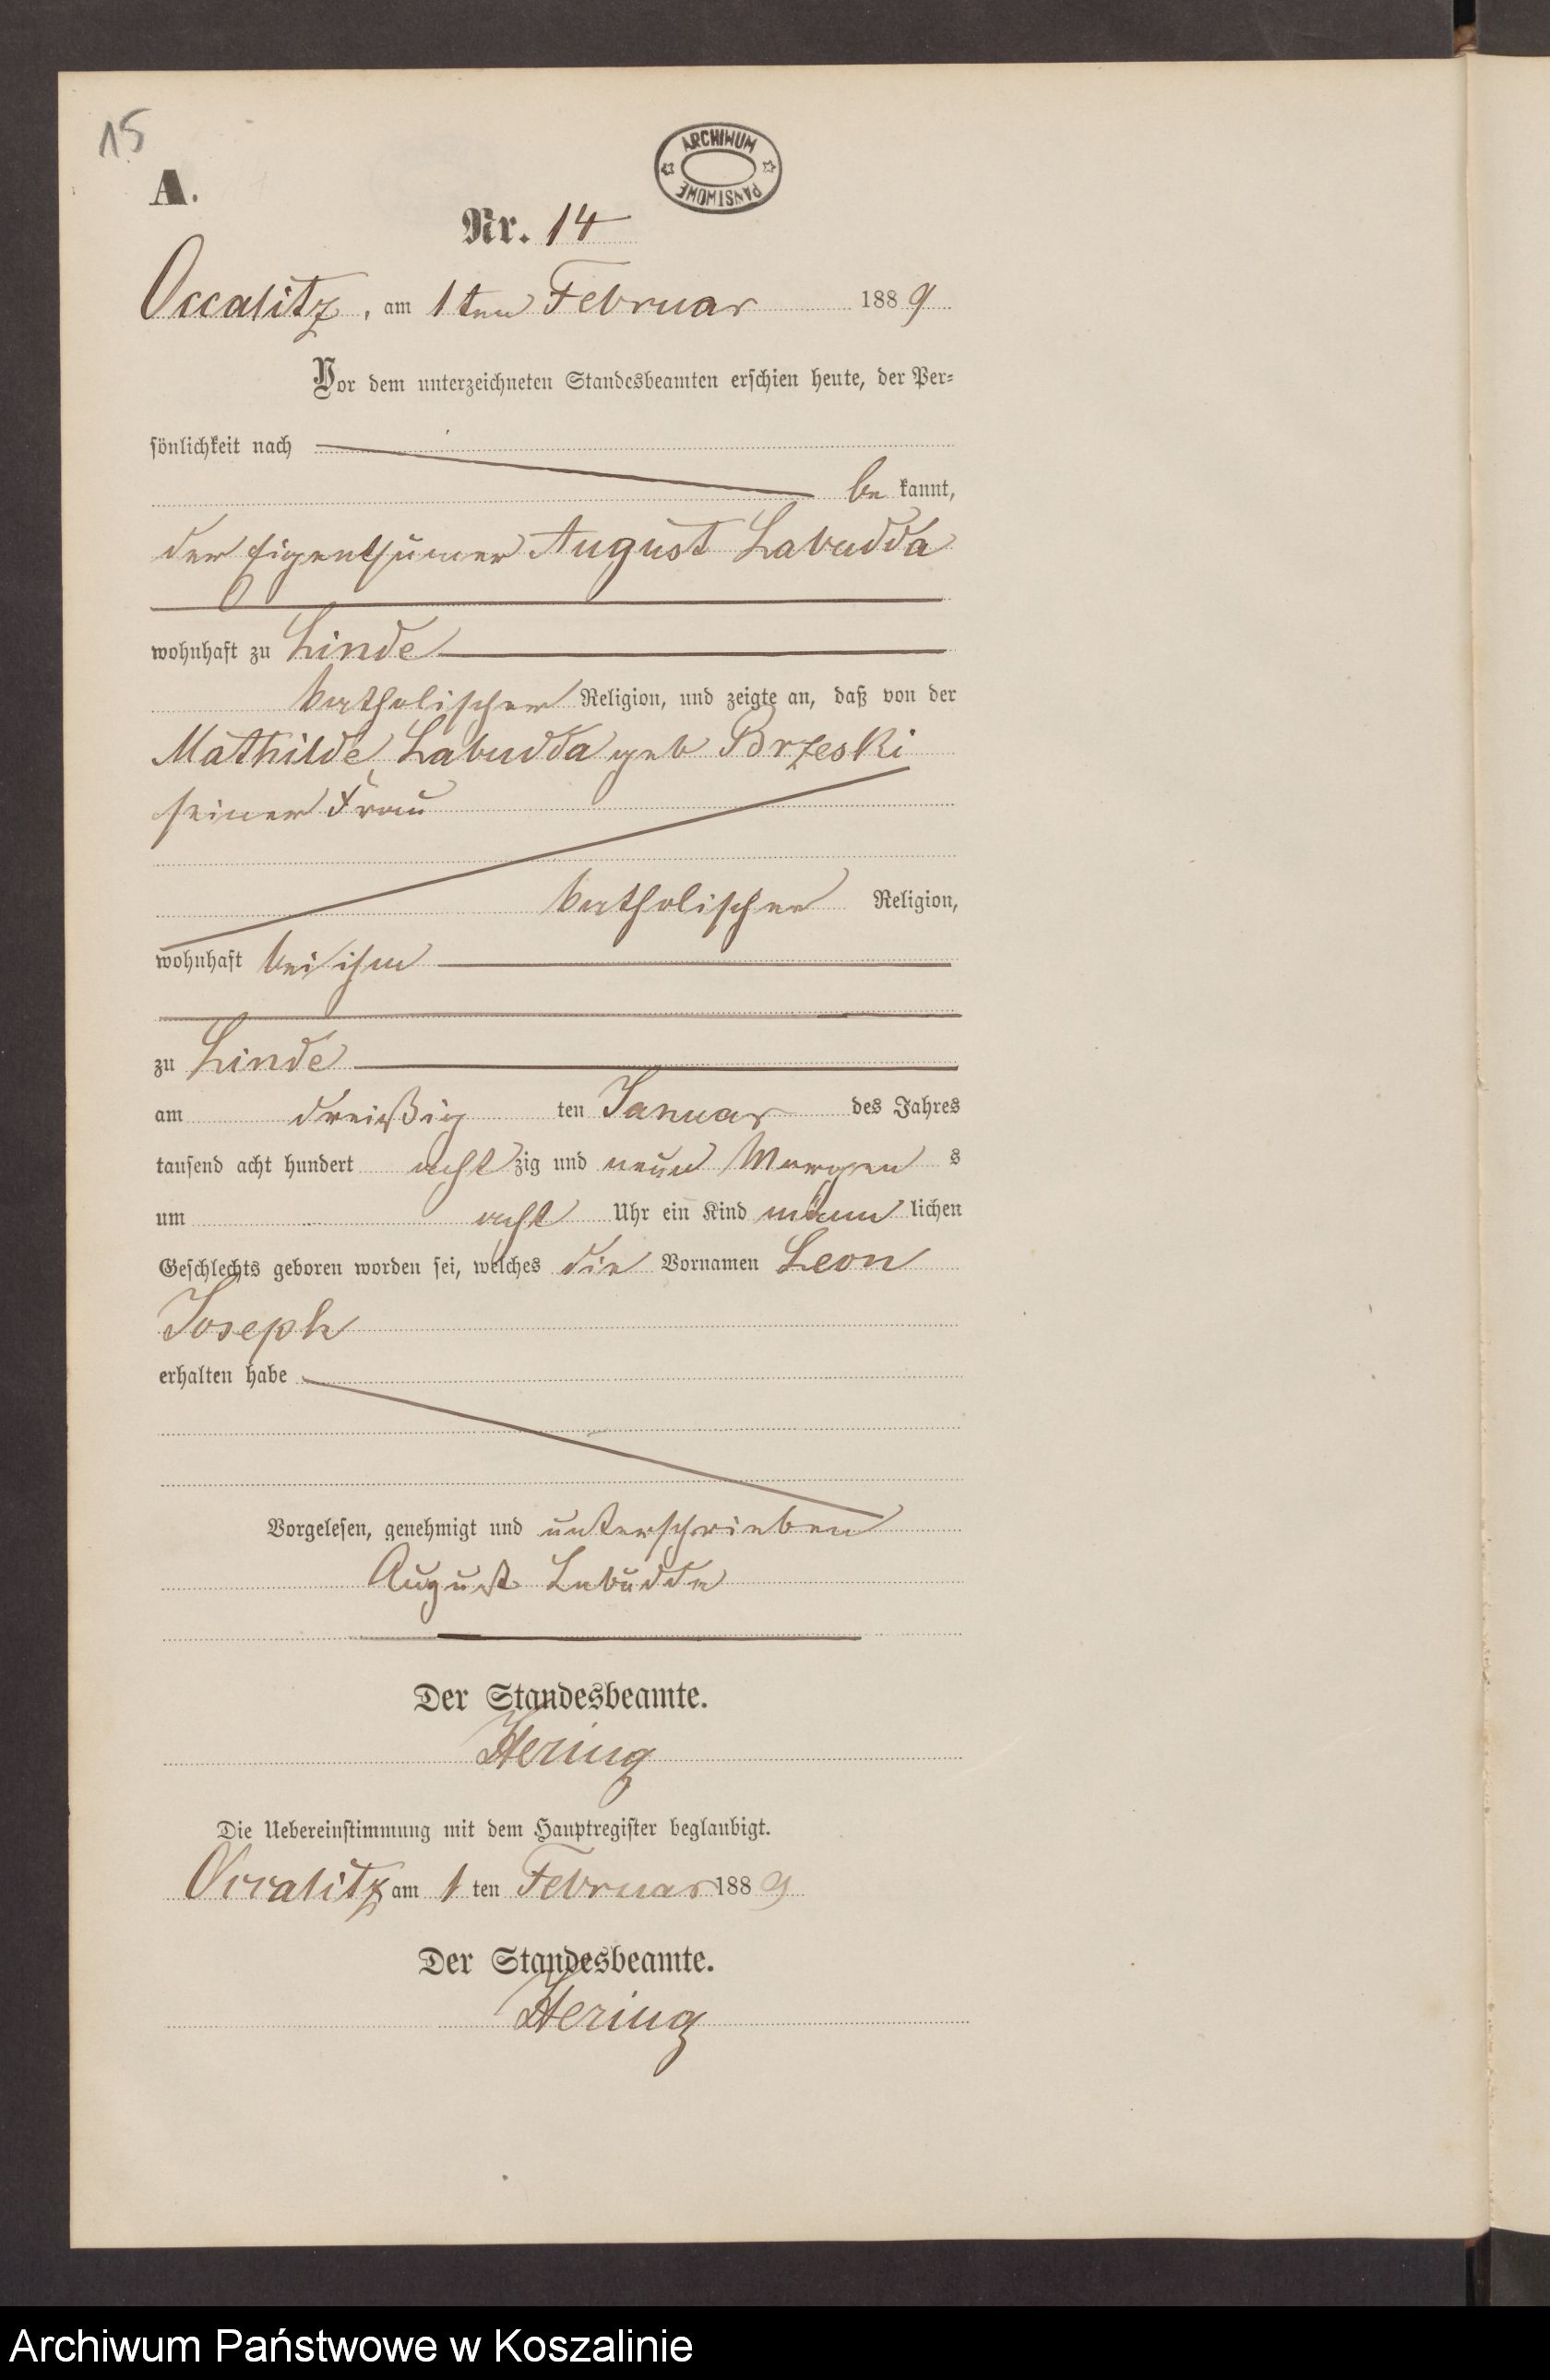 15
ARCHIWUM PAŃSTWOWE
A.
Nr. 14
Occalitz, am 1ten Februar 1889
Vor dem unterzeichneten Standesbeamten erschien heute, der Per-
sönlichkeit nach
be kannt,
der Eigenthümer August Labudda
wohnhaft zu Linde
katholischer Religion, und zeigte an, daß von der
Mathilde Labudda geb Brzeski
seiner Frau
katholischer Religion,
wohnhaft bei ihm
zu Linde
am dreißig ten Januar des Jahres
tausend acht hundert acht zig und neun Morgen s
um acht Uhr ein Kind männ lichen
Geschlechts geboren worden sei, welches die Vornamen Leon
Joseph
erhalten habe
Vorgelesen, genehmigt und unterschrieben
August Labudda
Der Standesbeamte.
Hering
Die Uebereinstimmung mit dem Hauptregister beglaubigt.
Occalitz am 1 ten Februar 1889
Der Standesbeamte.
Hering
Archiwum Państwowe w Koszalinie